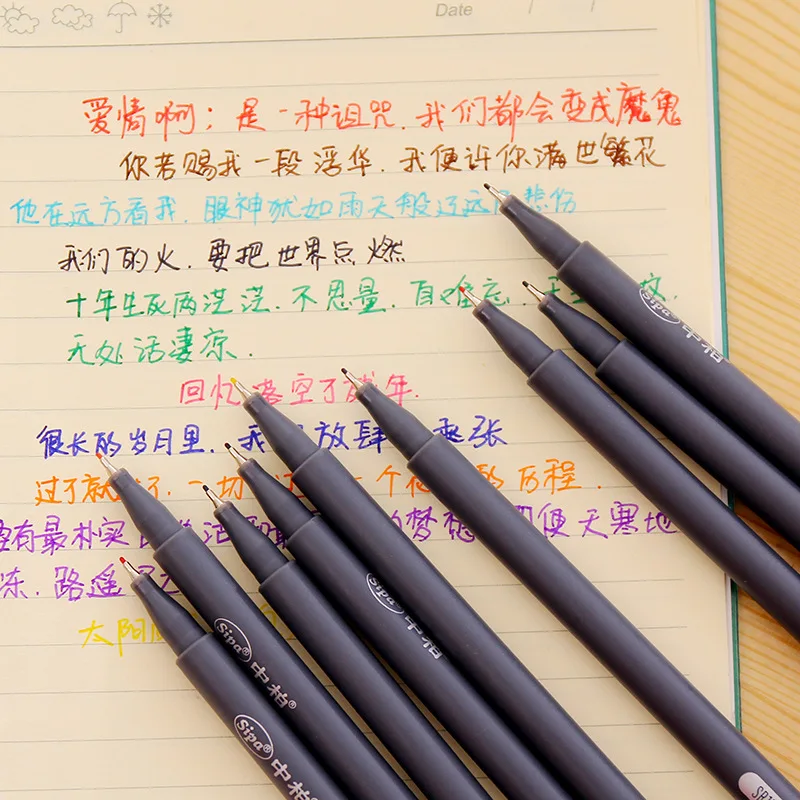 Date / /
爱情啊;是一种诅咒.我们都会变成魔鬼
你若赐我一段浮华.我便许你满世繁花
他在远方看我.眼神犹如雨天般辽远 悲伤
我们的火.要把世界点燃
十年生死两茫茫.不思量.自难忘.
无处话凄凉.
回忆落空了 年.
很长的岁月里.我 放肆 张
过了就 了.一切 一个 的历程.
有最朴实 生活 最 的梦想 即便天寒地
冻.路遥
太阳
Sipa® 中柏
Sipa® 中柏
Sipa® 中柏®
Sipa® 中柏